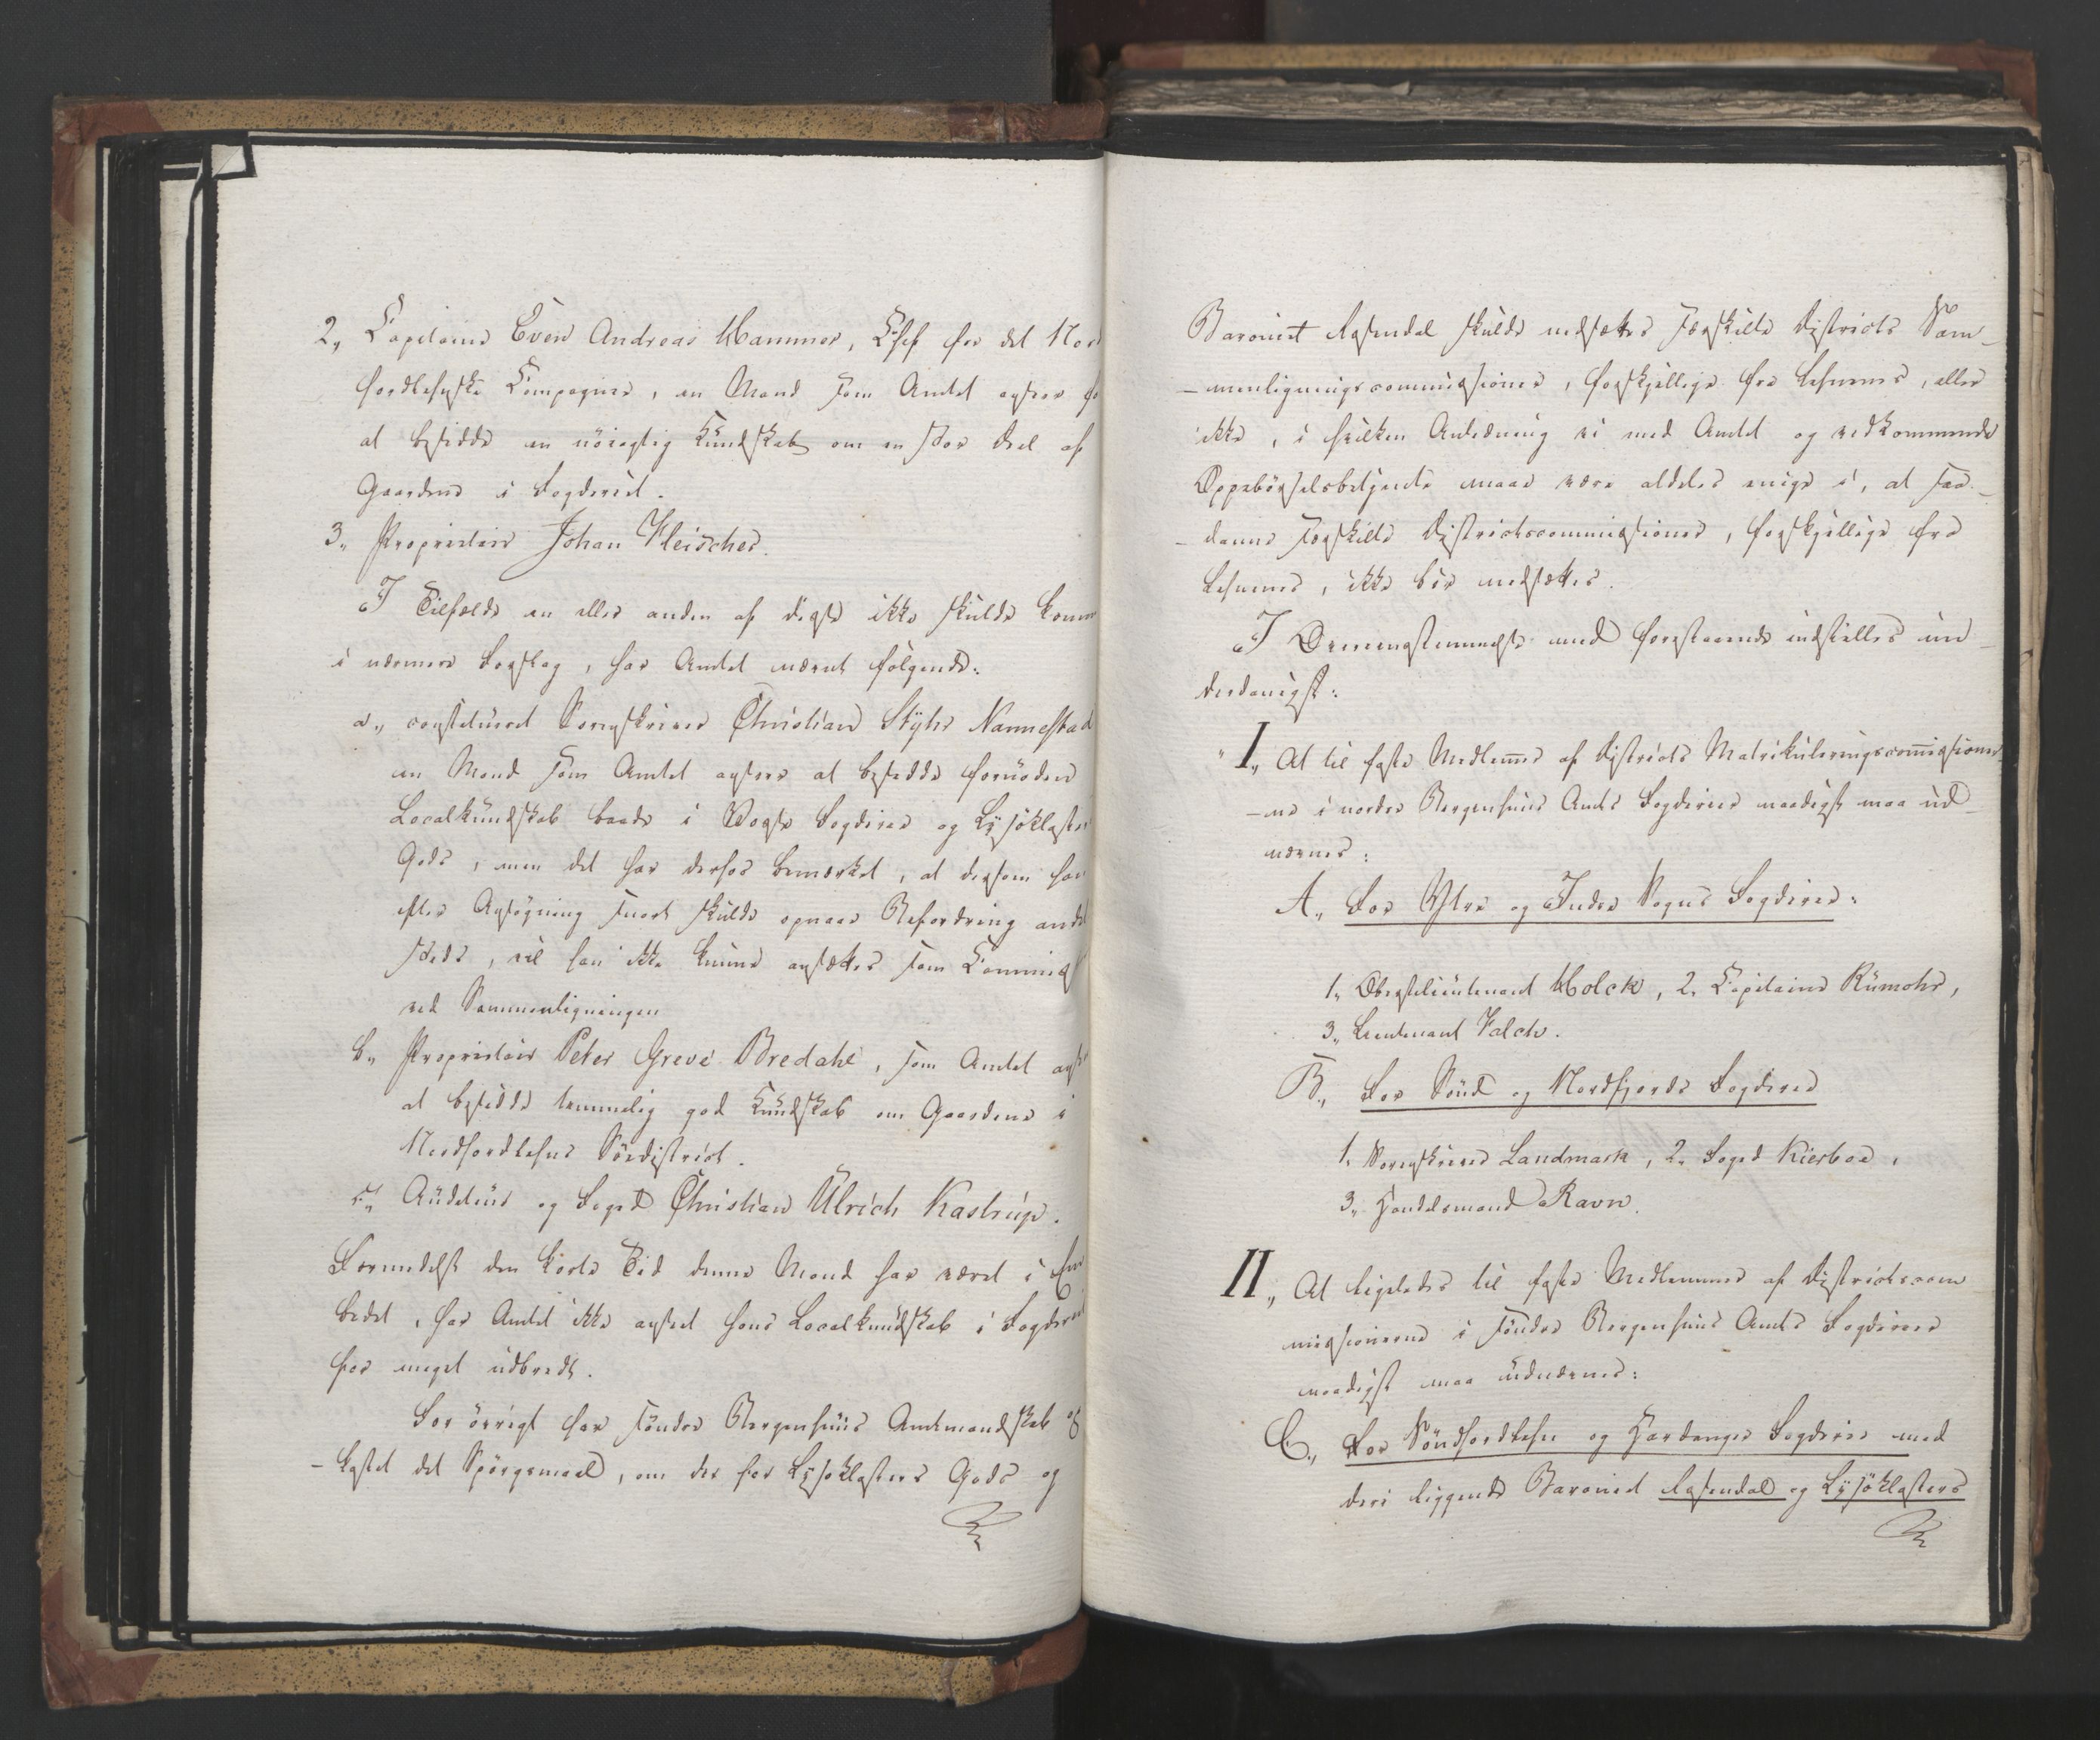 2, Capitaine Even Andreas Hammer, Chef for det Nor
hordlehnske Compagnie, en Mand som Amtet anseer fo
at besidde en nöiagtig Kundskab om en stor Deel af
Gaardene i Fogderiet.
3, Proprietair Johan Fleischer.
I Tilfælde en eller anden af disse ikke skulde komm
i nærmere Forslag, har Amtet nævnt følgende:
a, constitueret Sorenskriver Christian Stÿhr Nannestad
en Mand som Amtet anseer at besidde fornöden
Localkundskab baade i Vosse Fogderie og Lÿseklosters
Gods, men det har derhos bemærket, at dersom han
efter Ansögning snart skulde opnaae Befordring andet
Steds, vil han ikke kunne ansættes som Commiss
ved Sammenligningen
b, Proprietair Peter Greve Bredahl, som Amtet ans
at besidde temmelig god Kundskab om Gaardene i
Nordhordlehns Södistrict.
c, Auditeur og Foged Christian Ulrich Kastrup.
Formedelst den korte Tid denne Mand har været i Em
bedet, har Amtet ikke anseet hans Localkundskab i Fogderiet
for meget udbredt.
For övrigt har söndre Bergenhuus Amtmandskab op
- kastet det Spörgsmaal, om der for Lÿseklosters Gods og
Baroniet Rosendal skulde nedsættes særskilte Districts Sam-
- menligningscommissioner, forskjellige fra Lehnenes, eller
ikke, i hvilken Anledning vi med Amtet og vedkommende
Oppebörselsbetjente maae være aldeles enige i, at saa-
- danne særskilte Districtscommissioner, forskjellige fra
Lehnenes, ikke bör nedsættes.
I Overeensstemmelse med forestaaende indstilles un-
derdanigst:
I, At til faste Medlemmer af Districts Matrikuleringscommissioner-
- ne i nordre Bergenhuus Amts Fogderier naadigst maa ud-
nævnes:
A, For Ytre og Indre Sogns Fogderier:
1, Oberstlieutenant Holck, 2, Capitaine Rumohr,
3, Lieutenant Falch.
B, For Sönd og Nordfjords Fogderie
1, Sorenskriver Landmark, 2, Foged Kierboe,
3, Handelsmand Ravn.
II, At ligeledes til faste Medlemmer af Districtscom
missionerne i söndre Bergenhuus Amts Fogderier
naadigst maa udnævnes:
C, For Söndhordlehn og Hardanger Fogderie med
deri liggende Baroniet Rosendal og Lÿseklosters